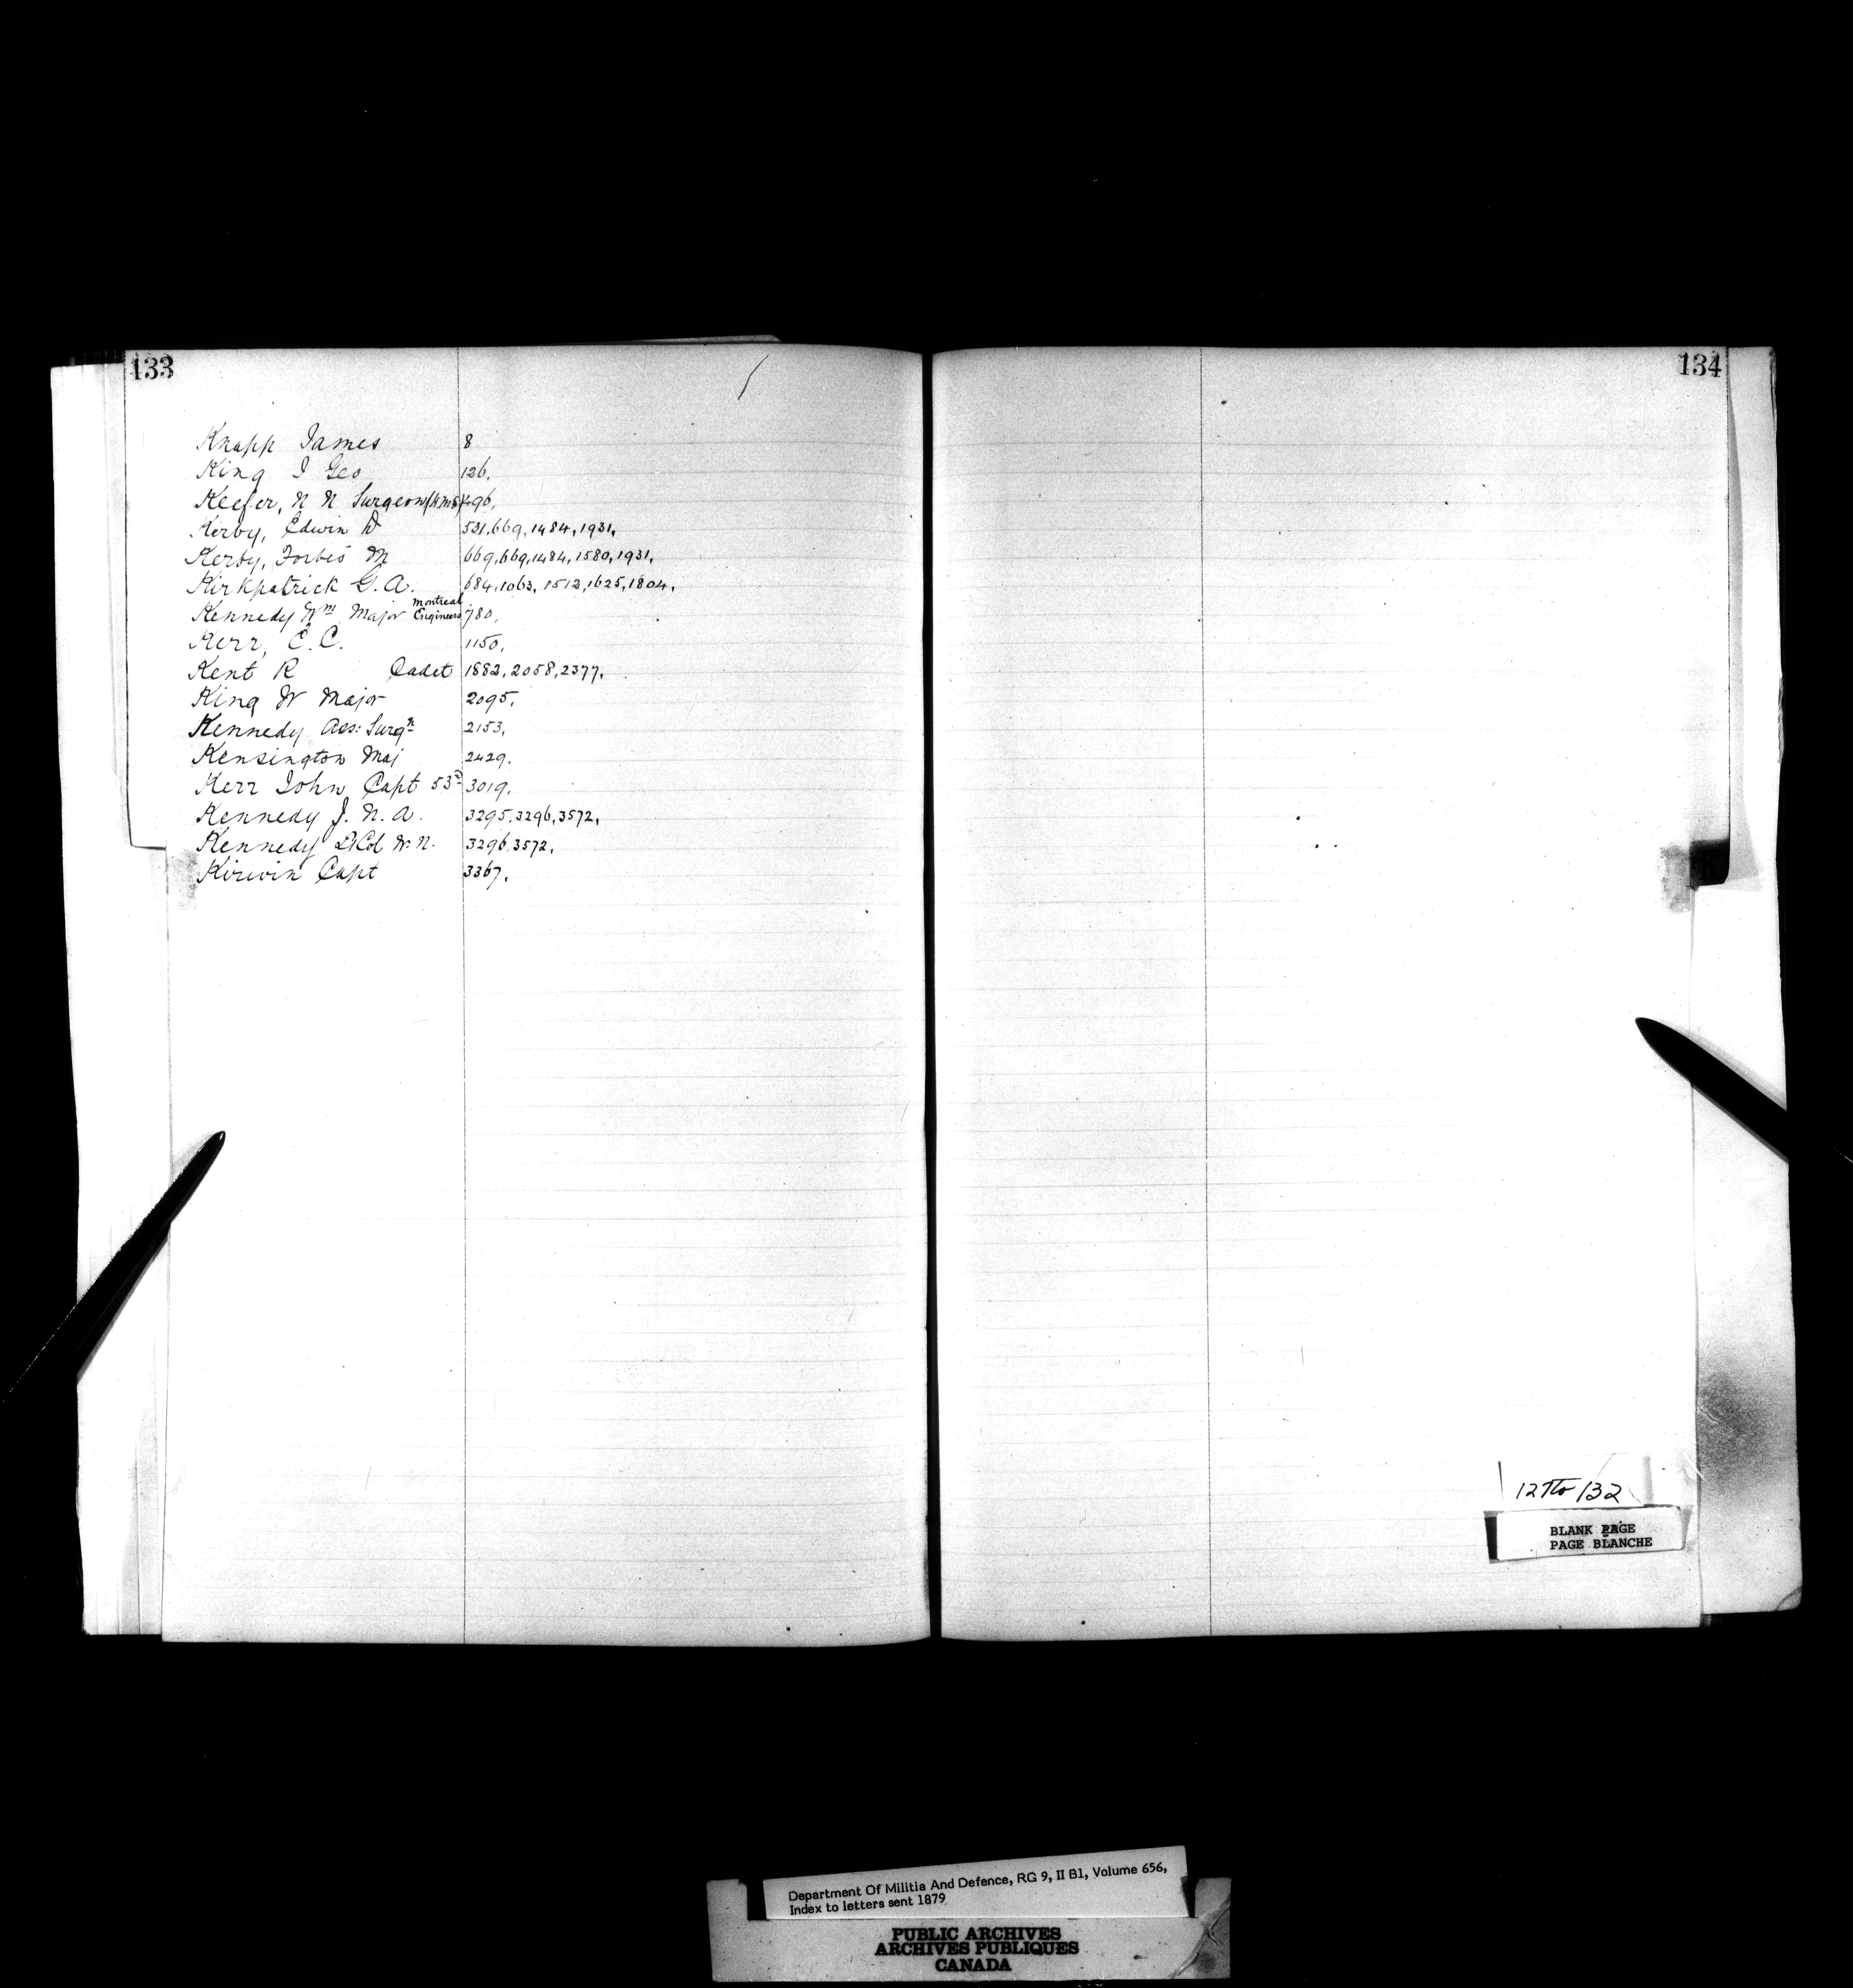 133
Knapp James 8
King J Geo 126.
Keefer, N N Surgeon 496.
Kerby, Edwin D 531, 669, 1484, 1931.
Kerby, Forbes M 669, 669, 1484, 1580, 1931.
Kirkpatrick G. A. 684, 1063, 1512, 1625, 1804.
Kennedy Wm Major Montreal Engineers 780.
Kerr, E. C. 1150.
Kent R Cadet 1882, 2058, 2377.
King W Major 2095.
Kennedy Ass: Surgn 2153.
Kensington Maj 2429.
Kerr John Capt 53d 3019.
Kennedy J. N. A. 3295, 3296, 3572.
Kennedy Lt Col W. N. 3296, 3572.
Kirwin Capt 3367.
134
K
127 to 132
BLANK PAGE
PAGE BLANCHE
Department Of Militia And Defence, RG 9, II B1, Volume 656,
Index to letters sent 1879
PUBLIC ARCHIVES
ARCHIVES PUBLIQUES
CANADA